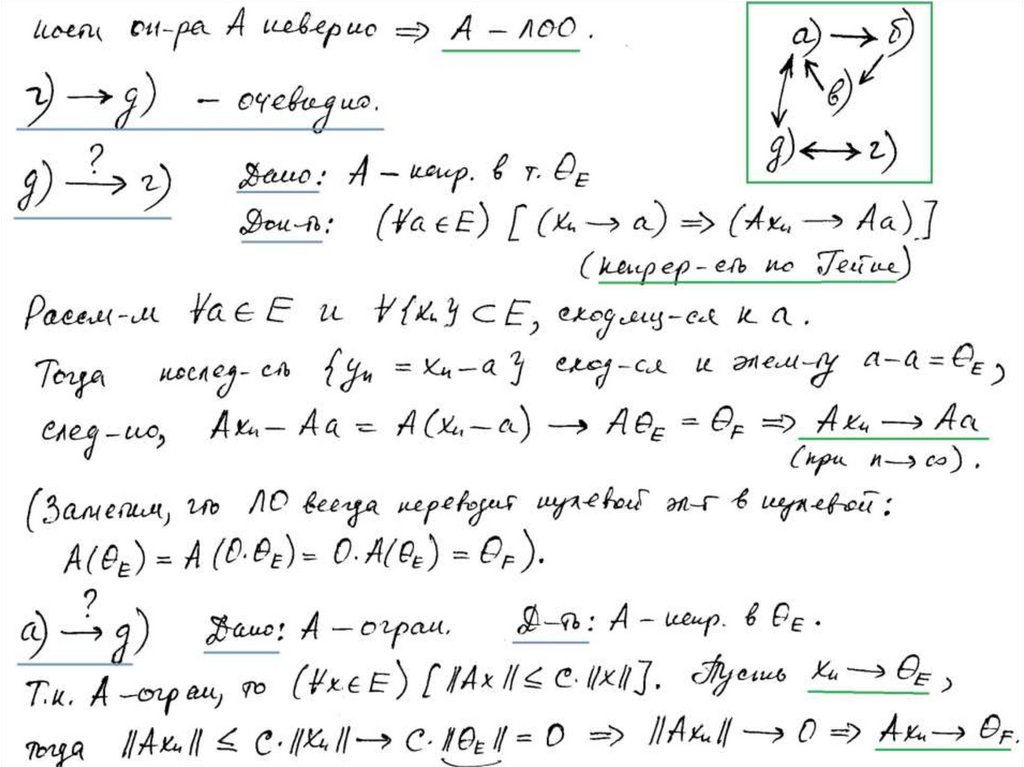 ности оп-ра A неверно ⇒ A – ЛОО.
а) → б)
в)
д) ↔ г)
г) → д) – очевидно.
д) →? г) Дано: A – непр. в т. θ_E
Док-ть: (∀a ∈ E) [(xₙ → a) ⇒ (Axₙ → Aa)]
(непрер-сть по Гейне)
Рассм-м ∀a ∈ E и ∀{xₙ} ⊂ E, сходящу-ся к a.
Тогда послед-сть {yₙ = xₙ – a} сход-ся к элем-ту a – a = θ_E,
след-но, Axₙ – Aa = A(xₙ – a) → Aθ_E = θ_F ⇒ Axₙ → Aa
(при n → ∞).
(Заметим, что ЛО всегда переводит нулевой эл-т в нулевой:
A(θ_E) = A(0·θ_E) = 0·A(θ_E) = θ_F).
а) →? д) Дано: A – огран. Д-ть: A – непр. в θ_E.
Т.к. A – огран, то (∀x ∈ E) [‖Ax‖ ≤ C·‖x‖]. Пусть xₙ → θ_E,
тогда ‖Axₙ‖ ≤ C·‖xₙ‖ → C·‖θ_E‖ = 0 ⇒ ‖Axₙ‖ → 0 ⇒ Axₙ → θ_F.